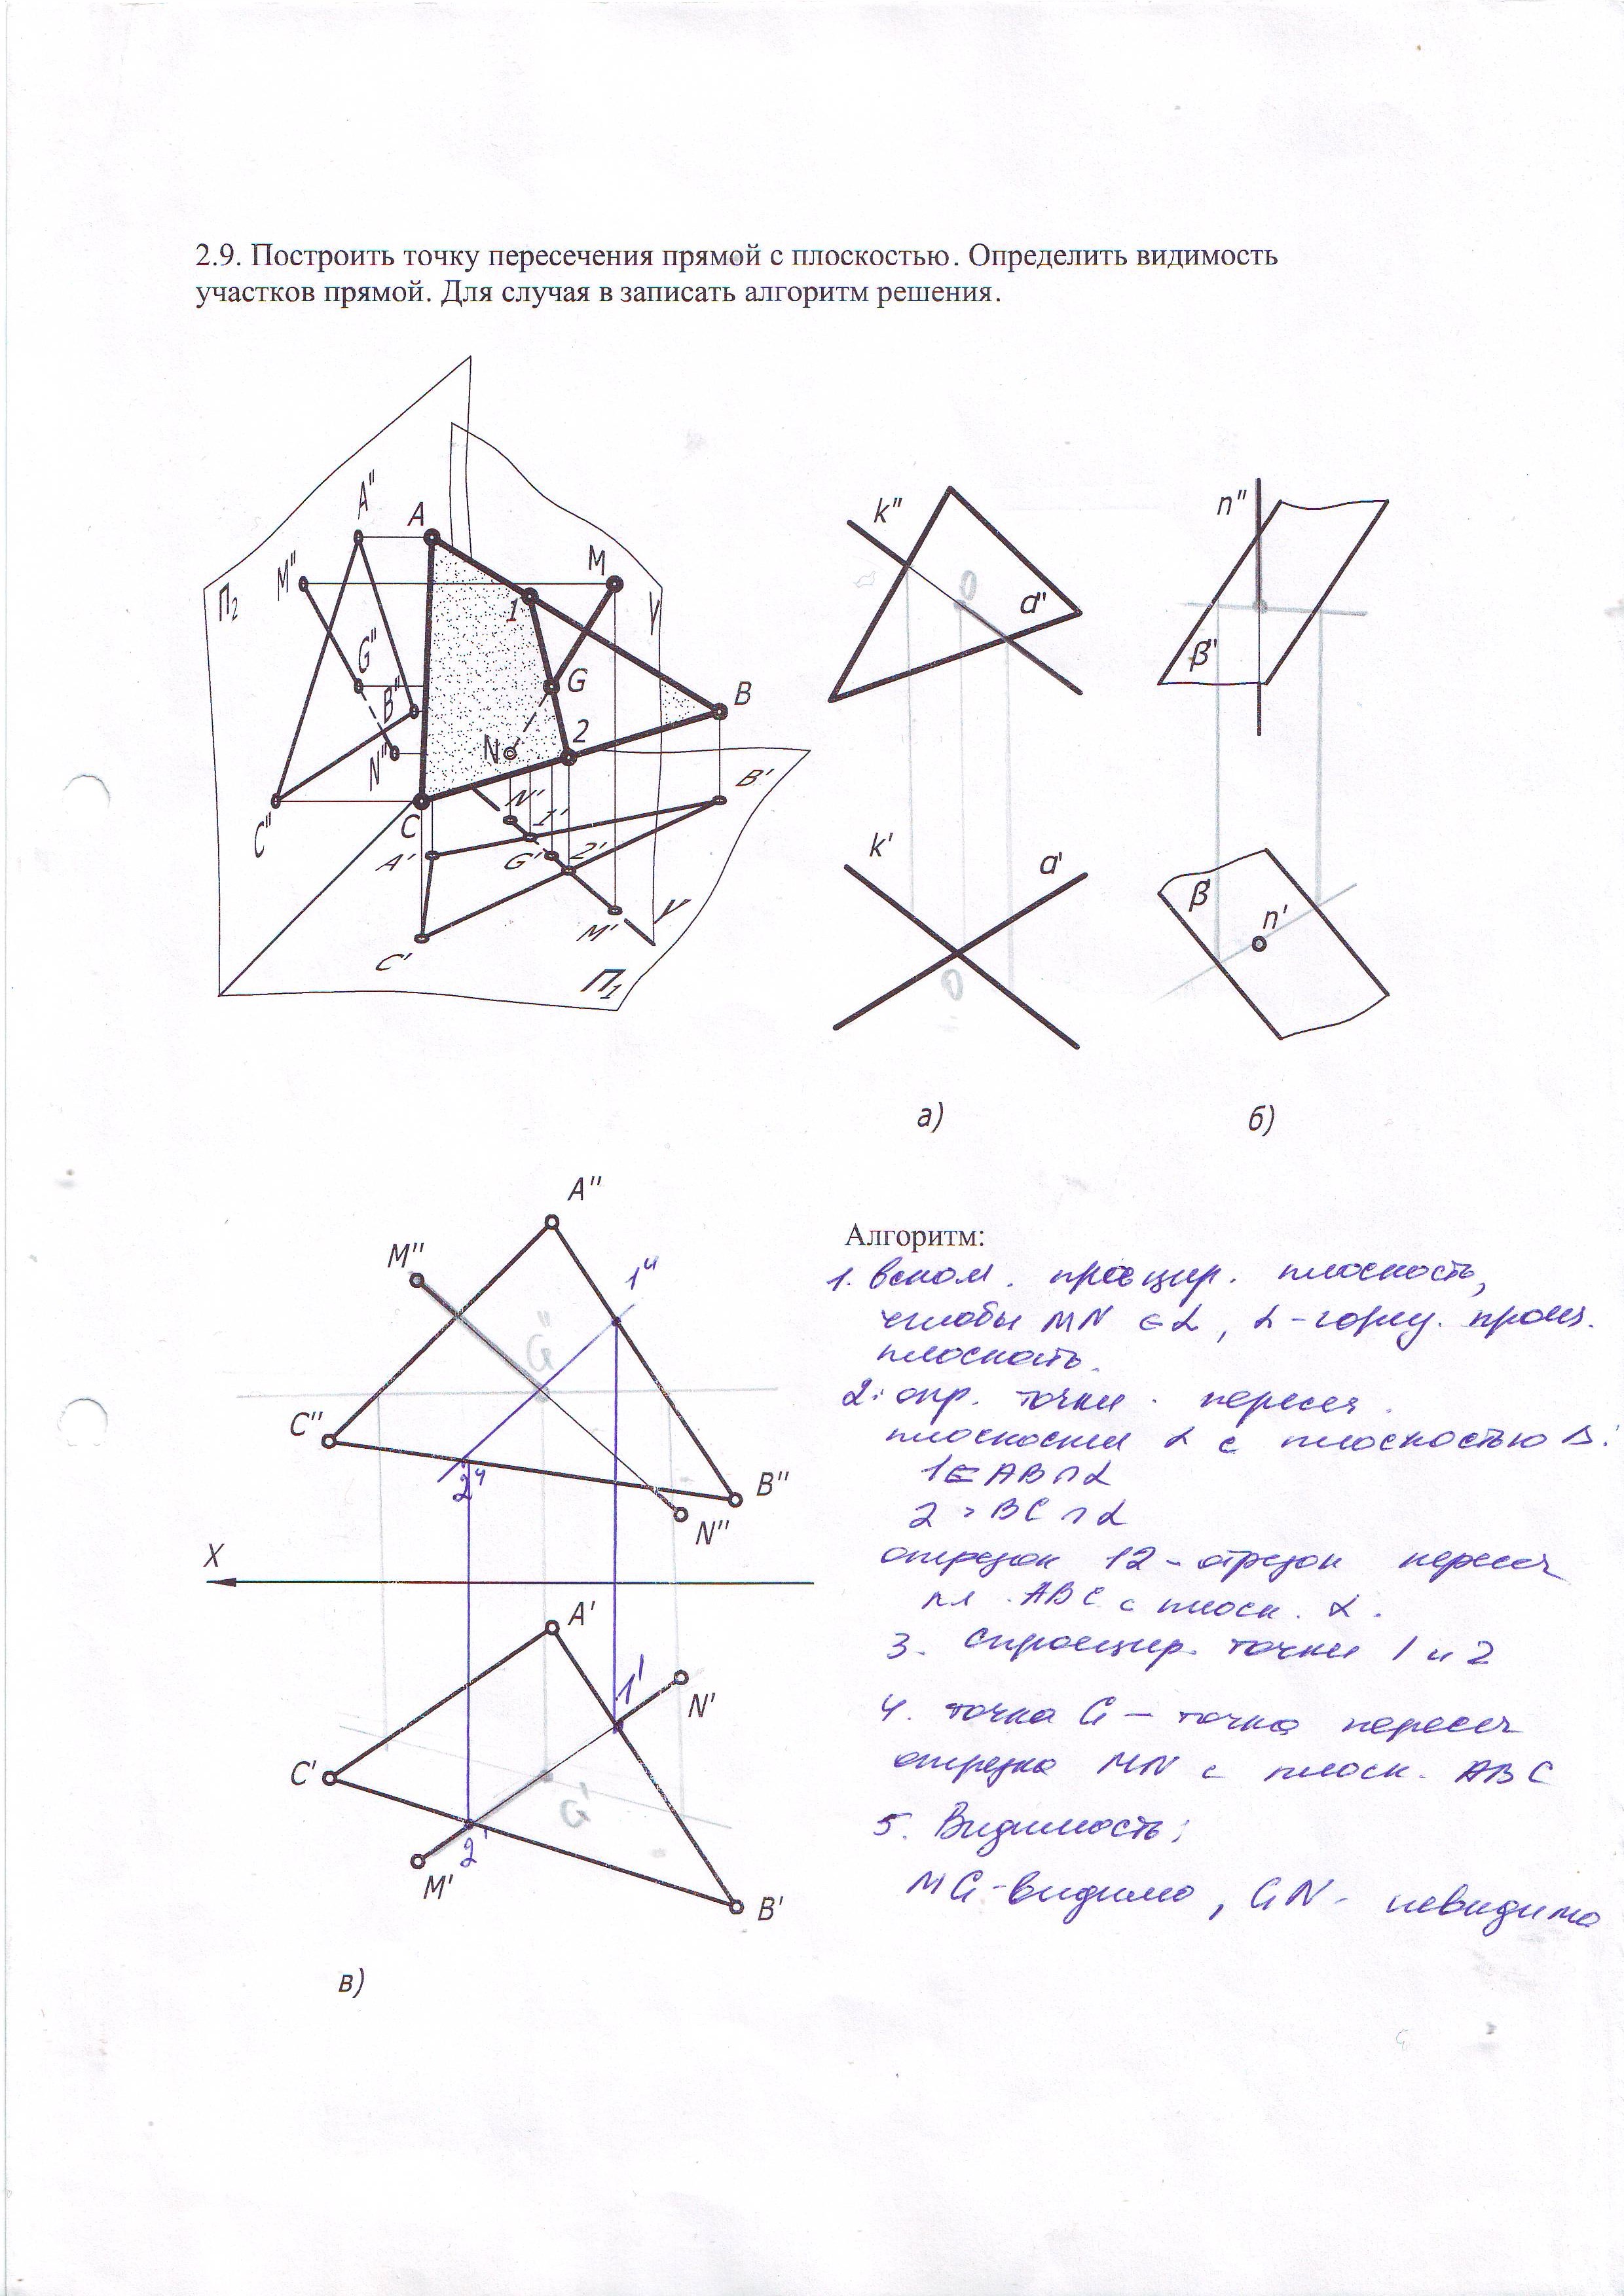 2.9. Построить точку пересечения прямой с плоскостью. Определить видимость
участков прямой. Для случая в записать алгоритм решения.
A"
A
M"
M
П₂
1
γ
G"
G
B"
B
2
N
N"
C"
C
N'
1'
B'
A'
G'
2'
M'
γ'
C'
П₁
k"
O
α"
n"
β"
k'
α'
O
β'
n'
а)
б)
A"
M"
1"
G"
C"
2"
B"
N"
X
A'
1'
N'
C'
G'
2'
M'
B'
в)
Алгоритм:
1. вспом. проецир. плоскость,
чтобы MN ∈ α, α - гориз. проец.
плоскость.
2. опр. точки пересеч.
плоскости α с плоскостью Δ:
1 ∈ AB ∩ α
2 = BC ∩ α
отрезок 12 - отрезок пересеч
пл. ABC с плоск. α.
3. спроецир. точки 1 и 2
4. точка G — точка пересеч
отрезка MN с плоск. ABC
5. Видимость:
MG - видимо, GN - невидимо